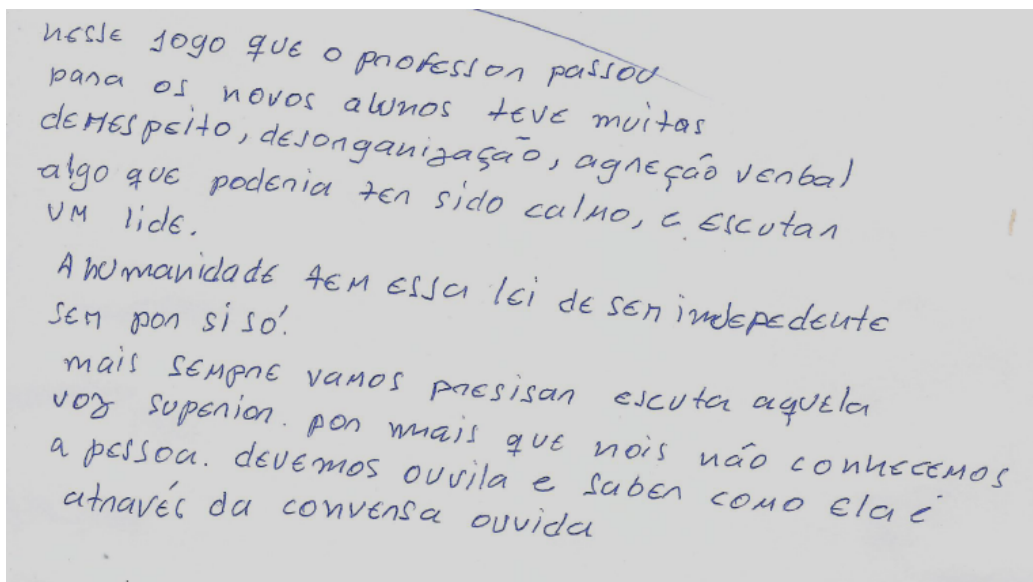 nesse jogo que o professor passou
para os novos alunos teve muitas
derrespeito, desorganização, agreção verbal
algo que poderia ter sido calmo, e escutar
um lide.
A humanidade tem essa lei de ser indepedente
ser por si só.
mais sempre vamos presisar escuta aquela
voz superior. por mais que nois não conhecemos
a pessoa. devemos ouvila e saber como ela é
através da conversa ouvida